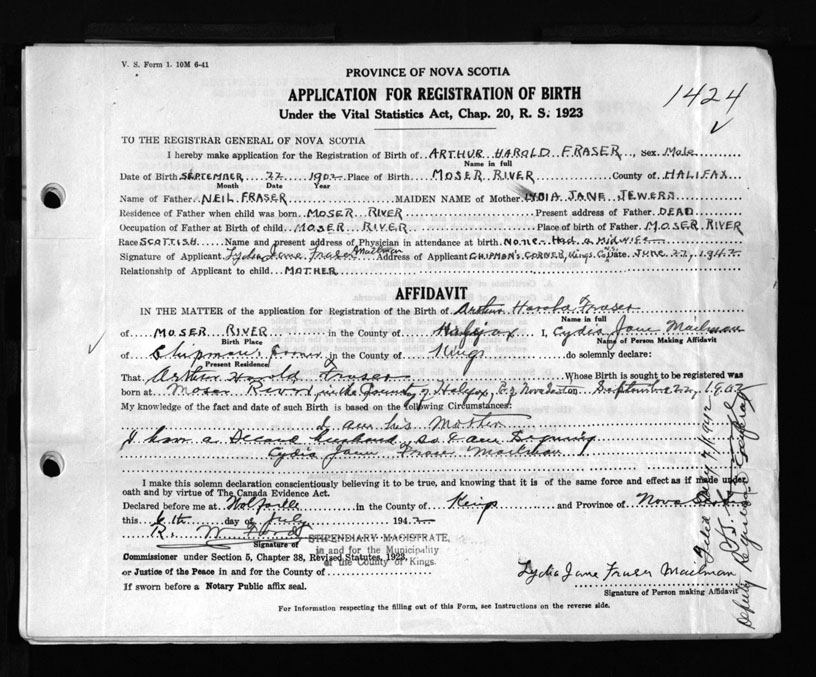 V. S. Form 1. 10M 6-41
PROVINCE OF NOVA SCOTIA
1424
APPLICATION FOR REGISTRATION OF BIRTH
Under the Vital Statistics Act, Chap. 20, R. S. 1923
TO THE REGISTRAR GENERAL OF NOVA SCOTIA
I hereby make application for the Registration of Birth of ARTHUR HAROLD FRASER, Sex Male
Name in full
Date of Birth SEPTEMBER 22 1902 Place of Birth MOSER RIVER County of HALIFAX
Month Date Year
Name of Father NEIL FRASER MAIDEN NAME of Mother LYDIA JANE JEWERS
Residence of Father when child was born MOSER RIVER Present address of Father DEAD
Occupation of Father at Birth of child MOSER RIVER Place of birth of Father MOSER RIVER
Race SCOTTISH Name and present address of Physician in attendance at birth None - Had a midwife
Signature of Applicant Lydia Jane Fraser Mailman Address of Applicant CHIPMAN'S CORNER, Kings Co. N.S. Date JUNE 22, 1942
Relationship of Applicant to child MOTHER
AFFIDAVIT
IN THE MATTER of the application for Registration of the Birth of Arthur Harold Fraser
Name in full
of MOSER RIVER in the County of Halifax I, Lydia Jane Mailman
Birth Place Name of Person Making Affidavit
of Chipman's Corner in the County of Kings do solemnly declare:
Present Residence
That Arthur Harold Fraser Whose Birth is sought to be registered was
born at Moser River in the County of Halifax, Nova Scotia September 22, 1902
My knowledge of the fact and date of such Birth is based on the following Circumstances:
I am his Mother
I have a Second husband, So I am Signing
Lydia Jane Fraser Mailman
I make this solemn declaration conscientiously believing it to be true, and knowing that it is of the same force and effect as if made under
oath and by virtue of The Canada Evidence Act.
Declared before me at Wolfville in the County of Kings and Province of Nova Scotia
this 6th day of July 1942
R. W. Ford
Signature of STIPENDIARY MAGISTRATE,
in and for the Municipality
Commissioner under Section 5, Chapter 38, Revised Statutes, 1923
of the County of Kings.
or Justice of the Peace in and for the County of
Lydia Jane Fraser Mailman
If sworn before a Notary Public affix seal.
Signature of Person making Affidavit
For Information respecting the filling out of this Form, see Instructions on the reverse side.
Filed July 7/1942
Deputy Registrar